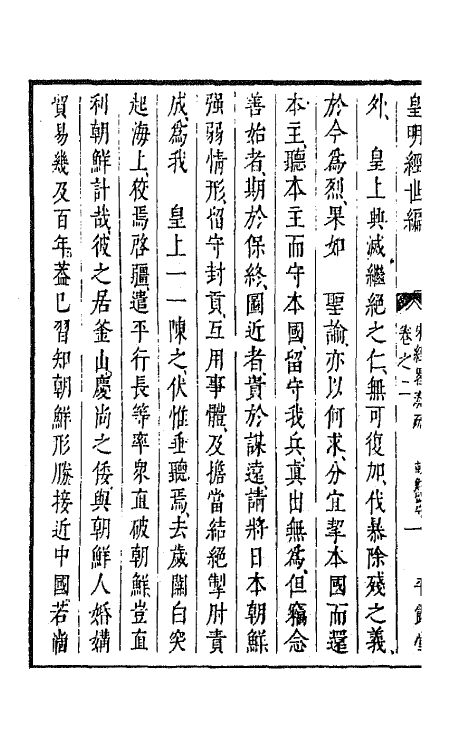 皇明經世編 卷之二 宋經畧奏疏 平露堂
外、 皇上興滅繼絕之仁、無可復加、伐暴除殘之義、
於今爲烈、果如 聖諭、亦以何求、分宜挈本國而還
本主、聽本主而守本國、留守我兵、眞出無爲、但竊念
善始者、期於保終、圖近者、貴於謀遠、請將日本朝鮮
強弱情形、留守封貢、互用事體、及擔當結絕掣肘責
成、爲我 皇上一一陳之、伏惟垂聽焉、去歲關白突
起海上、狡焉啓疆、遣平行長等率衆直破朝鮮、豈直
利朝鮮計哉、彼之居釜山、慶尚之倭、與朝鮮人婚媾
貿易、幾及百年、葢已習知朝鮮形勝、接近中國、若崗